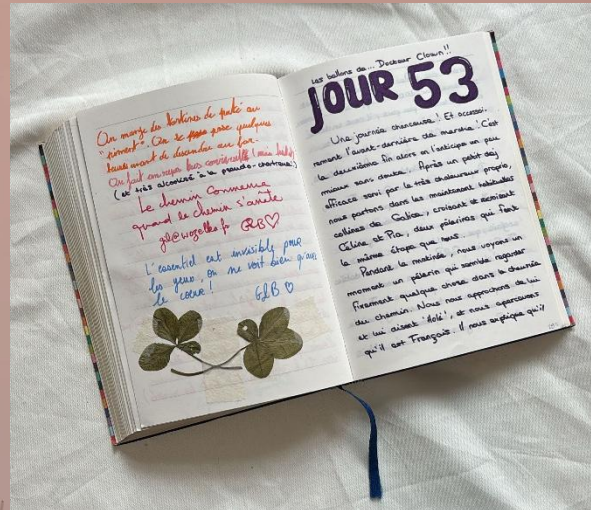 On mange des
"piment". On se pose quelques
heures avant de descendre au bar.
On fait un repas très convivial
(et très alcoolisé à la pseudo-chartreuse)
Le chemin commence
quand le chemin s'arrête
GLB ♡
L'essentiel est invisible pour
les yeux, on ne voit bien qu'avec
le cœur !
GLB ♡
Les ballons de... Docteur Clown !!
JOUR 53
Une journée chanceuse ! Et accessoi-
rement l'avant-dernière de marche ! C'est
la deuxième fin alors on l'anticipe un peu
mieux sans doute. Après un petit dèj
efficace servi par le très chaleureux proprio,
nous partons dans les maintenant habituelles
collines de Galice, croisant et recroisant
Céline et Pia, deux pélerines qui font
la même étape que nous.
Pendant la matinée, nous voyons un
moment un pélerin qui semble regarder
fixement quelque chose dans la chaussée
du chemin. Nous nous approchons de lui
et lui disant "Holà", et nous apercevons
qu'il est Français. Il nous explique qu'il